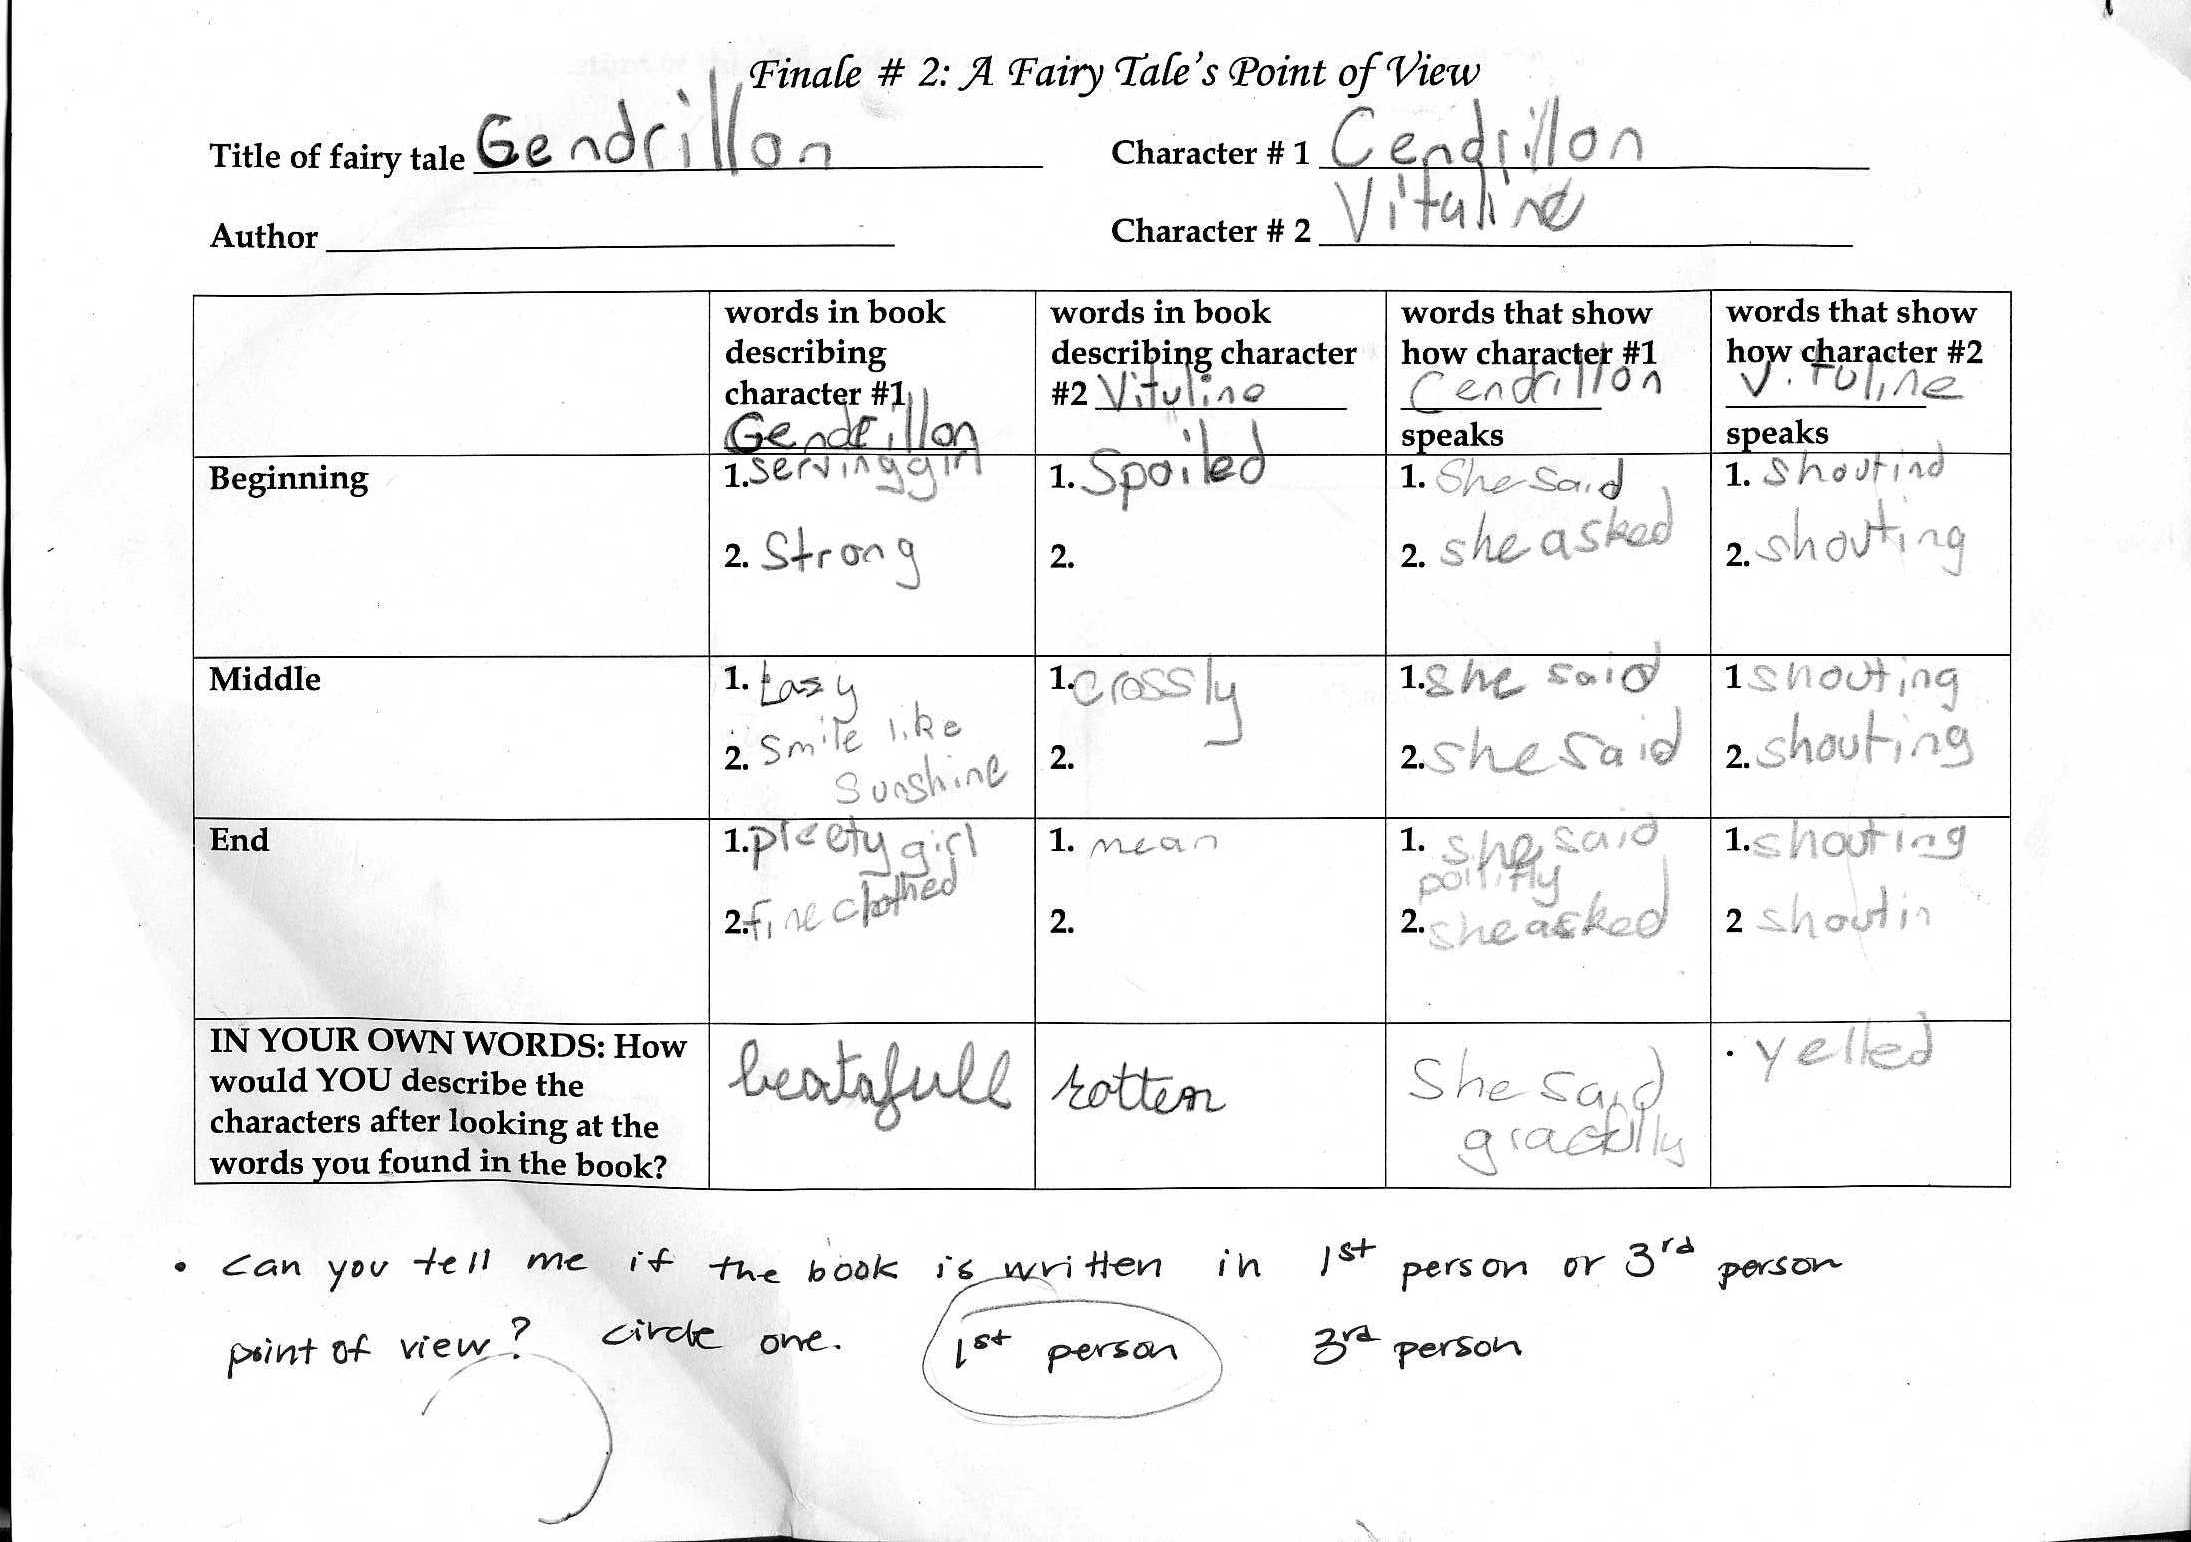 Finale # 2: A Fairy Tale's Point of View
Title of fairy tale Gendrillon
Character # 1 Cendrillon
Author
Character # 2 Vitaline
words in book describing character #1 Gendrillon
words in book describing character #2 Vituline
words that show how character #1 Cendrillon speaks
words that show how character #2 Vituline speaks
Beginning
1. serving girl
2. Strong
1. Spoiled
2.
1. She said
2. she asked
1. shoutind
2. shouting
Middle
1. Lasy
2. smile like sunshine
1. crossly
2.
1. she said
2. she said
1 shouting
2. shouting
End
1. preety girl
2. fine clothed
1. mean
2.
1. she said
2. she asked
1. shouting
2 shoutin
IN YOUR OWN WORDS: How
would YOU describe the
characters after looking at the
words you found in the book?
beatafull
rotten
She said
gracfully
. yelled
• Can you tell me if the book is written in 1st person or 3rd person
point of view? circle one. 1st person 3rd person